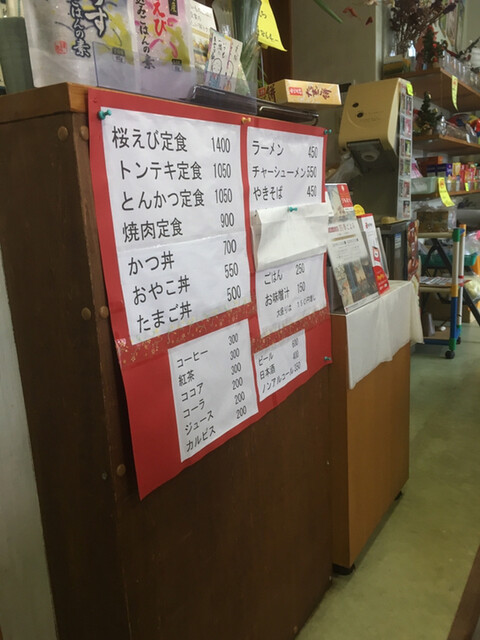 桜えび定食 1400
トンテキ定食 1050
とんかつ定食 1050
焼肉定食 900
かつ丼 700
おやこ丼 550
たまご丼 500
ラーメン 450
チャーシューメン 550
やきそば 450
ごはん 250
お味噌汁 150
コーヒー 300
紅茶 300
ココア 300
コーラ 200
ジュース 200
カルピス 200
ビール 600
日本酒 400
ノンアルコール 350